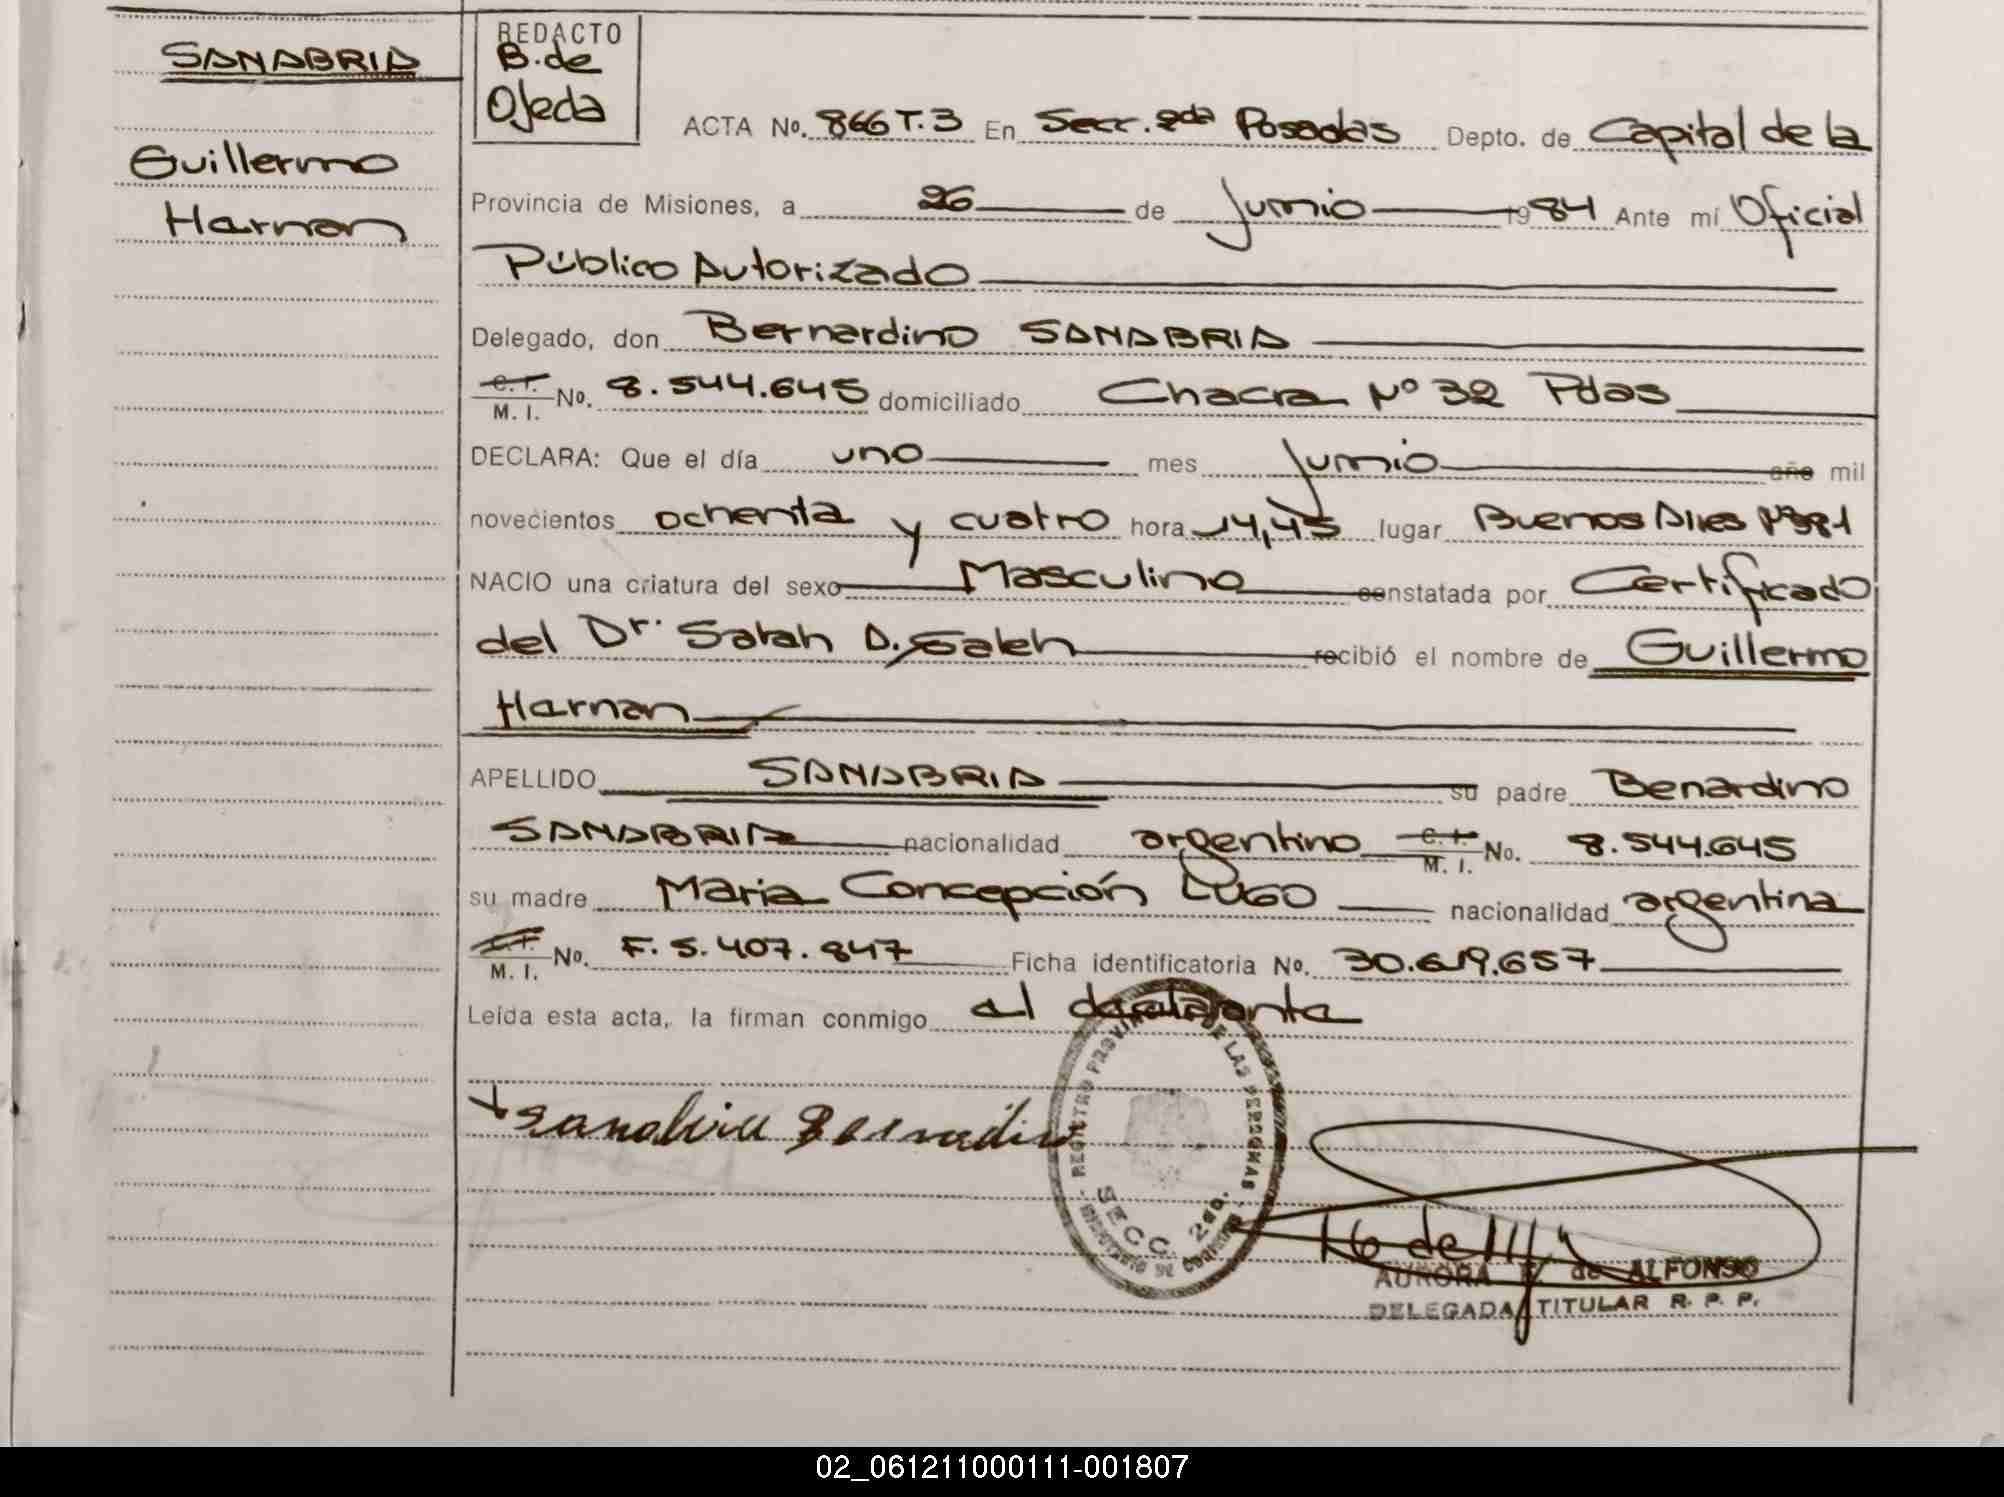 SANABRIA
Guillermo
Harnan
REDACTO
B. de
Ojeda
ACTA No. 866 T.3 En Secc. 2da Posadas Depto. de Capital de la
Provincia de Misiones, a 26 de Junio 1984 Ante mí Oficial
Público Autorizado
Delegado, don Bernardino SANABRIA
C. I.
M. I. No. 8.544.645 domiciliado Chacra Nº 32 Pdas
DECLARA: Que el día uno mes Junio año mil
novecientos ochenta y cuatro hora 14,45 lugar Buenos Aires Nº 381
NACIO una criatura del sexo Masculino constatada por Certificado
del Dr. Sarah D. Saleh recibió el nombre de Guillermo
Harnan
APELLIDO SANABRIA su padre Benardino
SANABRIA nacionalidad argentino C. I. M. I. No. 8.544.645
su madre Maria Concepción LUGO nacionalidad argentina
C. I.
M. I. No. F. 5.407.847 Ficha identificatoria No. 30.619.657
Leída esta acta, la firman conmigo el declarante
Sanabria Bernardino
REGISTRO PROVINCIAL DE LAS PERSONAS
SECC. 2da.
AURORA de ALFONSO
DELEGADA TITULAR R. P. P.
02_061211000111-001807